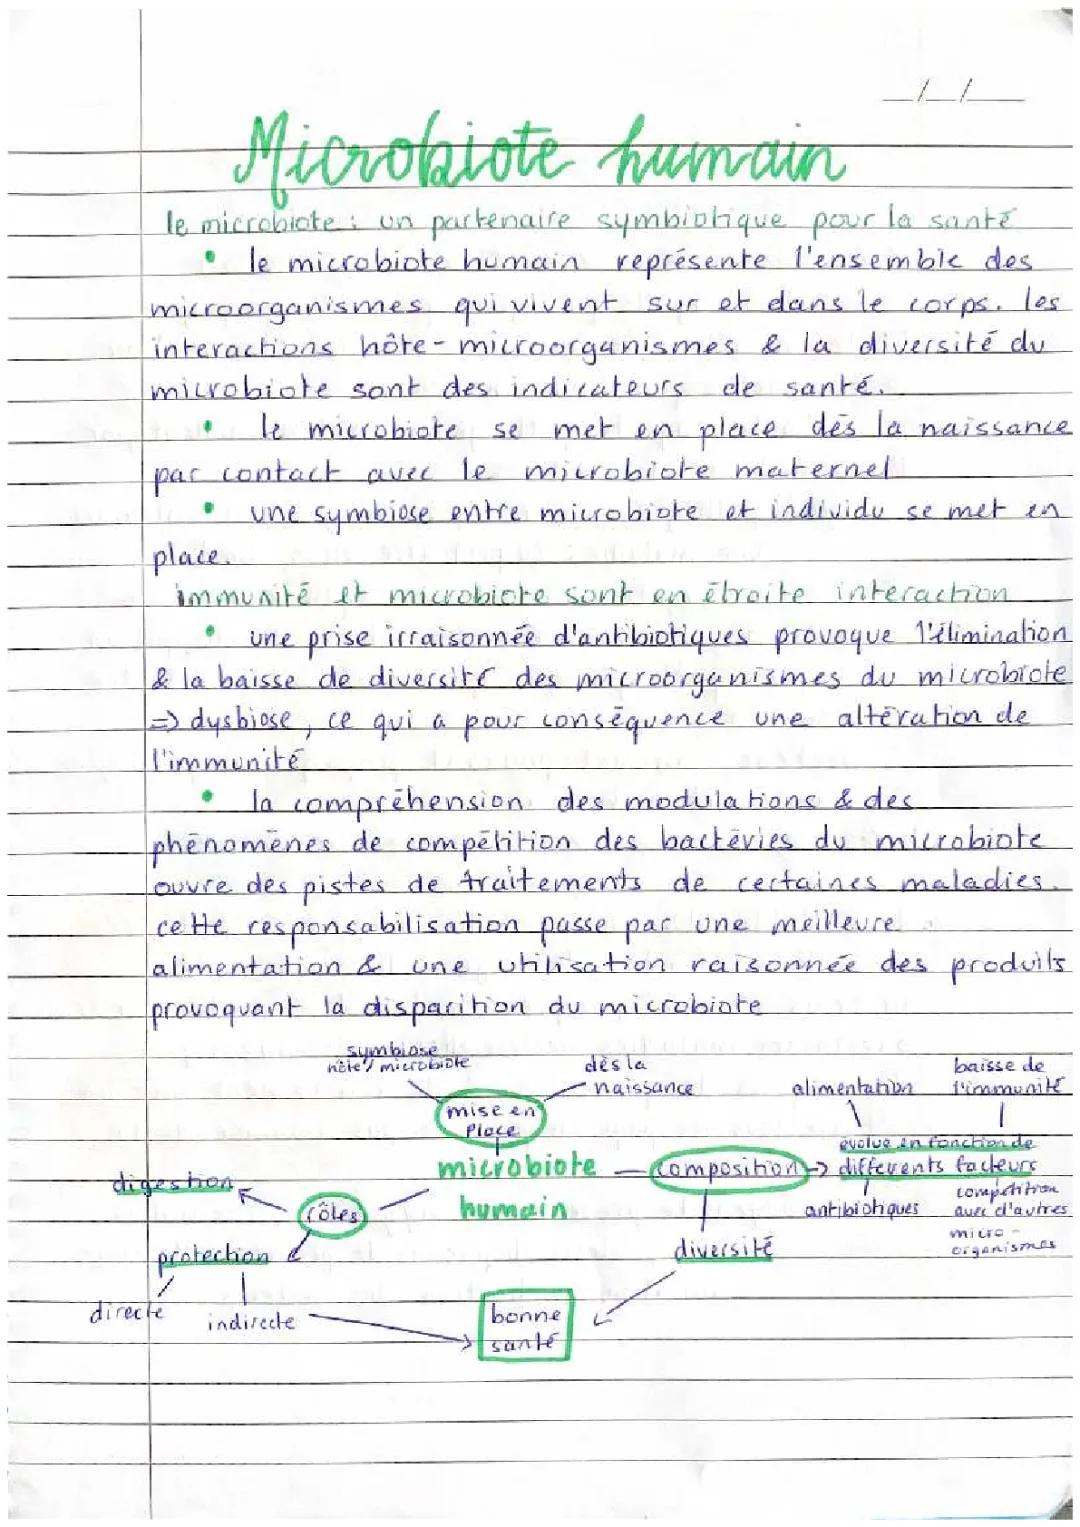 _/_/__
Microbiote humain
le microbiote : un partenaire symbiotique pour la santé
• le microbiote humain représente l'ensemble des
microorganismes qui vivent sur et dans le corps. les
interactions hôte-microorganismes & la diversité du
microbiote sont des indicateurs de santé.
• le microbiote se met en place dès la naissance
par contact avec le microbiote maternel
• une symbiose entre microbiote et individu se met en
place.
immunité et microbiote sont en étroite interaction
• une prise irraisonnée d'antibiotiques provoque l'élimination
& la baisse de diversité des microorganismes du microbiote
=> dysbiose, ce qui a pour conséquence une altération de
l'immunité
• la compréhension des modulations & des
phénomènes de compétition des bactéries du microbiote
ouvre des pistes de traitements de certaines maladies.
cette responsabilisation passe par une meilleure
alimentation & une utilisation raisonnée des produits
provoquant la disparition du microbiote
symbiose
hôte/microbiote
dès la
naissance
mise en
place
alimentation
baisse de
l'immunité
évolue en fonction de
différents facteurs
microbiote
humain
composition
antibiotiques
compétition
avec d'autres
micro-
organismes
digestion
rôles
protection
diversité
directe
indirecte
bonne
santé